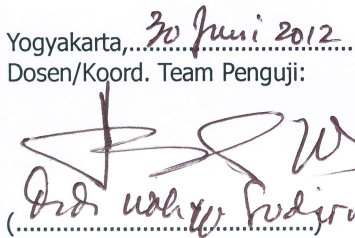 Yogyakarta, 30 Juni 2012
Dosen/Koord. Team Penguji:
(Didi Wahyu Sudir)